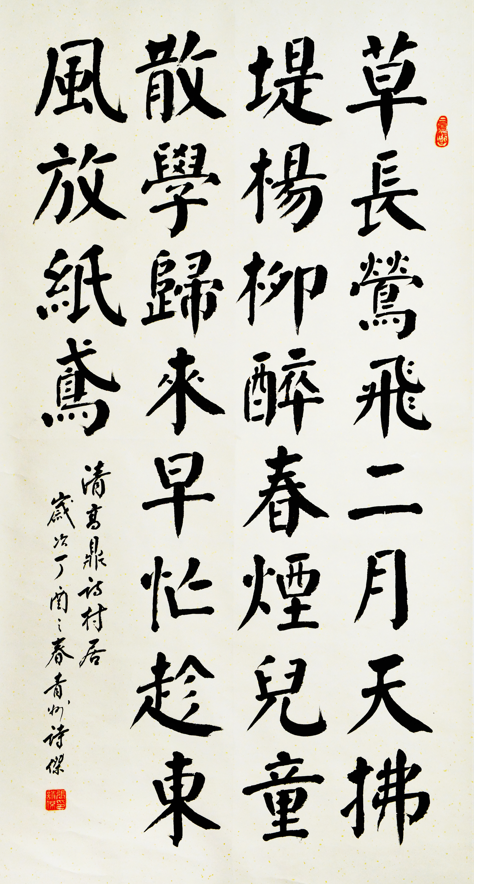 草長鶯飛二月天拂
堤楊柳醉春煙兒童
散學歸來早忙趁東
風放紙鳶
清高鼎詩村居
歲次丁酉之春青州詩傑